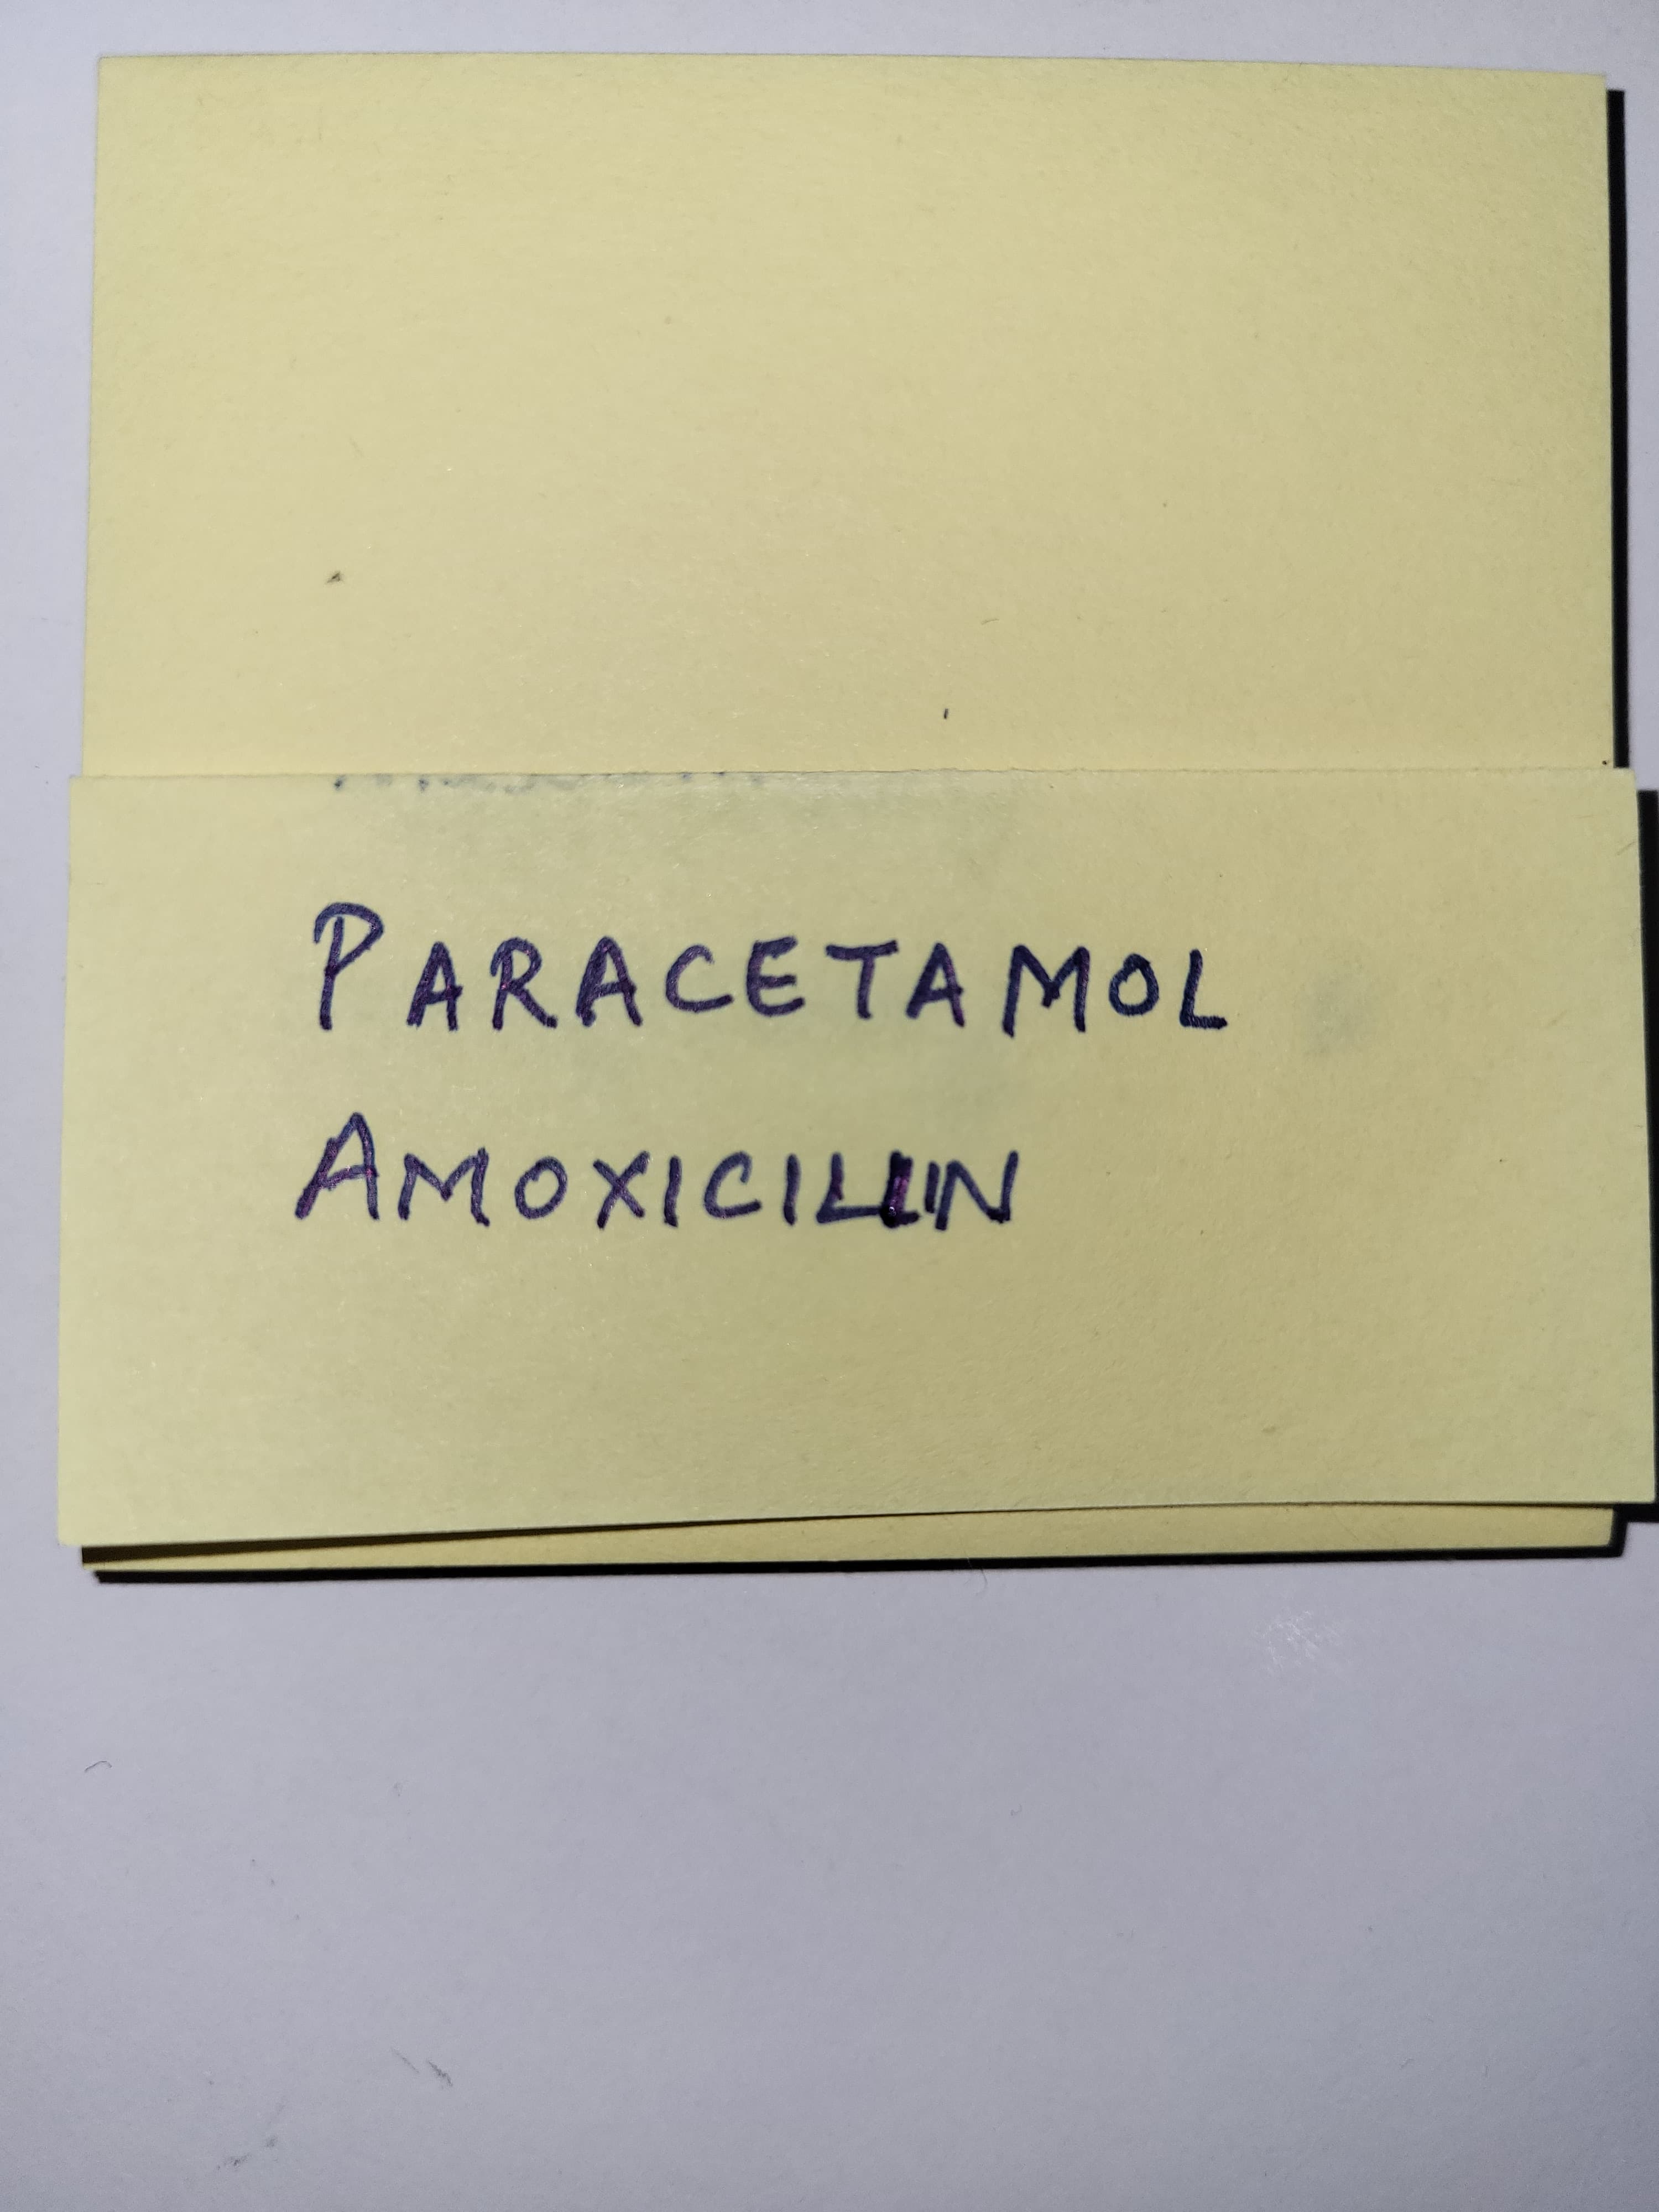 PARACETAMOL
AMOXICILLIN